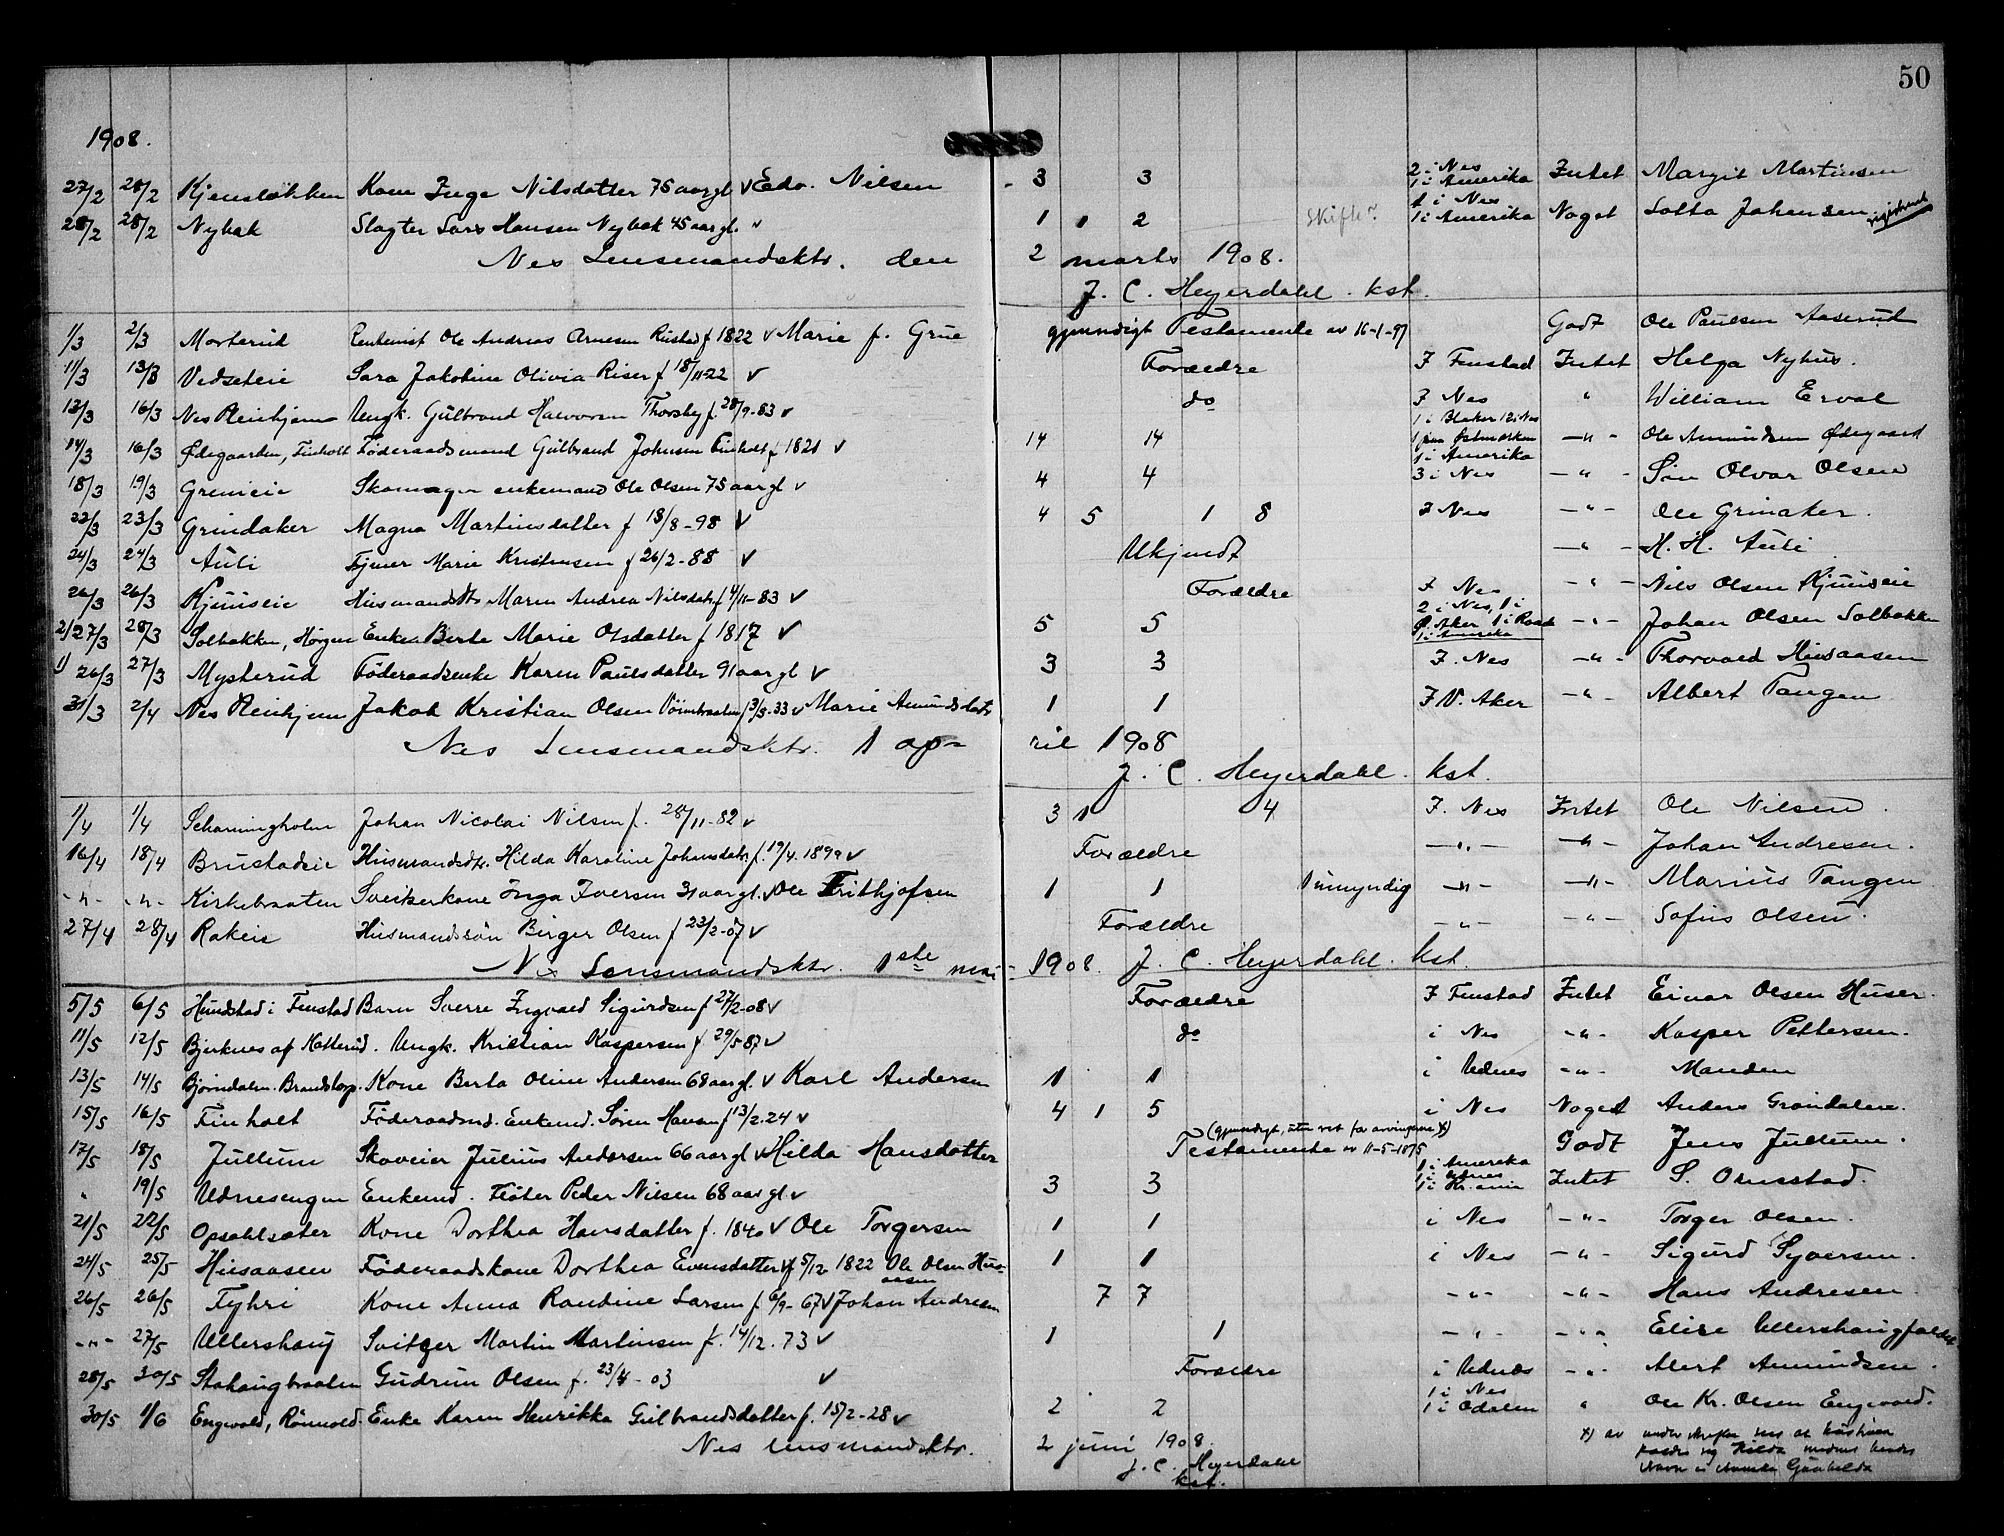 50
1908.
27/2 28/2 Kjensløkken Kone Inge Nilsdatter 75 aar gl. v Edv. Nilsen - 3 3 2 i Nes 1 i Amerika Intet Margit Martinsen
28/2 28/2 Nybak Slagter Lars Hansen Nybak 45 aar gl. v 1 1 2 Skifter 1 i Nes 1 i Amerika Noget Lotta Johansen
Nes Lensmandsktr. den 2 marts 1908.
J. C. Heyerdahl. kst.
1/3 2/3 Morterud Rentenist Ole Andreas Arnesen Rustad f 1822 v Marie f. Grue gjensidigt Testamente av 16-1-97 Godt Ole Paulsen Aaserud
11/3 13/3 Vedseteie Sara Jakobine Olivia Riser f 18/11-22 v Forældre I Fenstad Intet Helga Nyhus.
13/3 16/3 Nes Pleiehjem Ungk. Gulbrand Halvorsen Thorsby f. 28/9-83 v do I Nes " William Erval
14/3 16/3 Ødegaarden, Finholt Föderaadsmand Gulbrand Johnsen Finholt f 1821 v 14 14 1 i Blaker 12 i Nes 1 paa Østmarken —"- Ole Amundsen Ødegaard
18/3 19/3 Grenieie Skomager enkemand Ole Olsen 75 aar gl v 4 4 1 i Amerika 3 i Nes —"- Sön Olvar Olsen
22/3 23/3 Grindaker Magna Martinsdatter f 18/8-98 v 4 5 1 8 I Nes —"- Ole Grinaker.
24/3 24/3 Auli Marie Kristensen f 26/2-88 v Ukjendt —"- H. H. Auli
26/3 26/3 Kjuuseie Husmandsdtr Maren Andrea Nilsdatr f 4/11-83 v Forældre I Nes —"- Nils Olsen Kjuuseie
2) 27/3 28/3 Solbakken, Høgne Enke Berte Marie Olsdatter f 1817 v 5 5 2 i Nes, 1 i Ø. Aker 1 i Raade 1 i Amerika —"- Johan Olsen Solbakken
1) 26/3 27/3 Mysterud Föderaadsenke Karen Paulsdatter 91 aar gl v 3 3 I. Nes —"- Thorvald Husaasen
31/3 2/4 Nes Pleiehjem Jakob Kristian Olsen f 3/3-33 v Marie Amundsdatr 1 1 I V. Aker —"- Albert Tangen
Nes Lensmandsktr. 1 april 1908
J. C. Heyerdahl. kst.
1/4 1/4 Scharningholm Johan Nicolai Nilsen f. 28/11-82 v 3 1 4 I. Nes Intet Ole Nilsen.
16/4 18/4 Brustadeie Husmandsdtr. Hilda Karoline Johansdatr f. 19/4. 1899 v Forældre —"- —"- Johan Andresen.
-"- -"- Kirkebraaten Sveitserkone Inga Iversen 31 aar gl. v Ole Frithjofsen 1 1 1 umyndig —"- —"- Marius Tangen
27/4 28/4 Rakeie Husmandssön Birger Olsen f 23/2-07 v Forældre —"- —"- Sofus Olsen.
Nes Lensmandsktr. 1ste mai 1908. J. C. Heyerdahl. kst.
5/5 6/5 Hundstad i Fenstad Barn Sverre Ingvald Sigurdsen f 27/2-08 v Forældre I Fenstad Intet Einar Olsen Huser.
11/5 12/5 Bjerknes af Katterud. Ungk. Kristian Kaspersen f 29/5 87 v do i Nes -"- Kasper Pettersen.
13/5 14/5 Björndalen. Brandstorp. Kone Berta Oline Andersen 68 aar gl. v Karl Andersen 1 1 i Udnes -"- Manden
15/5 16/5 Finholt Föderaadsmd. Enkemd. Sören Hansen f 13/2. 24 v 4 1 5 i Nes Noget Anders Gröndalen.
17/5 18/5 Jullum Skoveier Julius Andersen 66 aar gl v Hilda Hansdatter (gjensidigt, uten ret for arvingerne x) Testamente av 11-5-1875 Godt Jens Jullum.
" 19/5 Udnesengen Enkemd. Flöter Peder Nilsen 68 aar gl v 3 3 1 i Amerika 1 i Udnes 1 i Kr.ania Intet S. Ormstad.
21/5 22/5 Opsahlsæter Kone Dorthea Hansdatter f. 1840 v Ole Torgersen 1 1 i Nes -"- Torger Olsen.
24/5 25/5 Husaasen Föderaadskone Dorthea Evensdatter v f 5/12 1822 Ole Olsen Husaasen 1 1 i Nes -"- Sigurd Syversen.
26/5 26/5 Fyhri Kone Anna Randine Larsen f 6/9-67 v Johan Andresen 7 7 -"- -"- Hans Andresen.
-"- 27/5 Ullershaug Svitzer Martin Martinsen f. 14/12. 73 v 1 1 -"- -"- Elise Ullershaug
28/5 30/5 Stahaugbraaten Gudrun Olsen f. 23/4-03 v Forældre i Udnes -"- Alert Amundsen.
30/5 1/6 Engvold, Rönnold. Enke Karen Henrikka Gulbrandsdatter f. 15/2-28 v 2 2 1 i Nes 1 i Odalen " Ole Kr. Olsen Engvold.
Nes lensmandsktr. 2 juni 1908.
J. C. Heyerdahl
kst.
x) av
kaldes sig Hilda medens hendes
Navn er Gunhilda